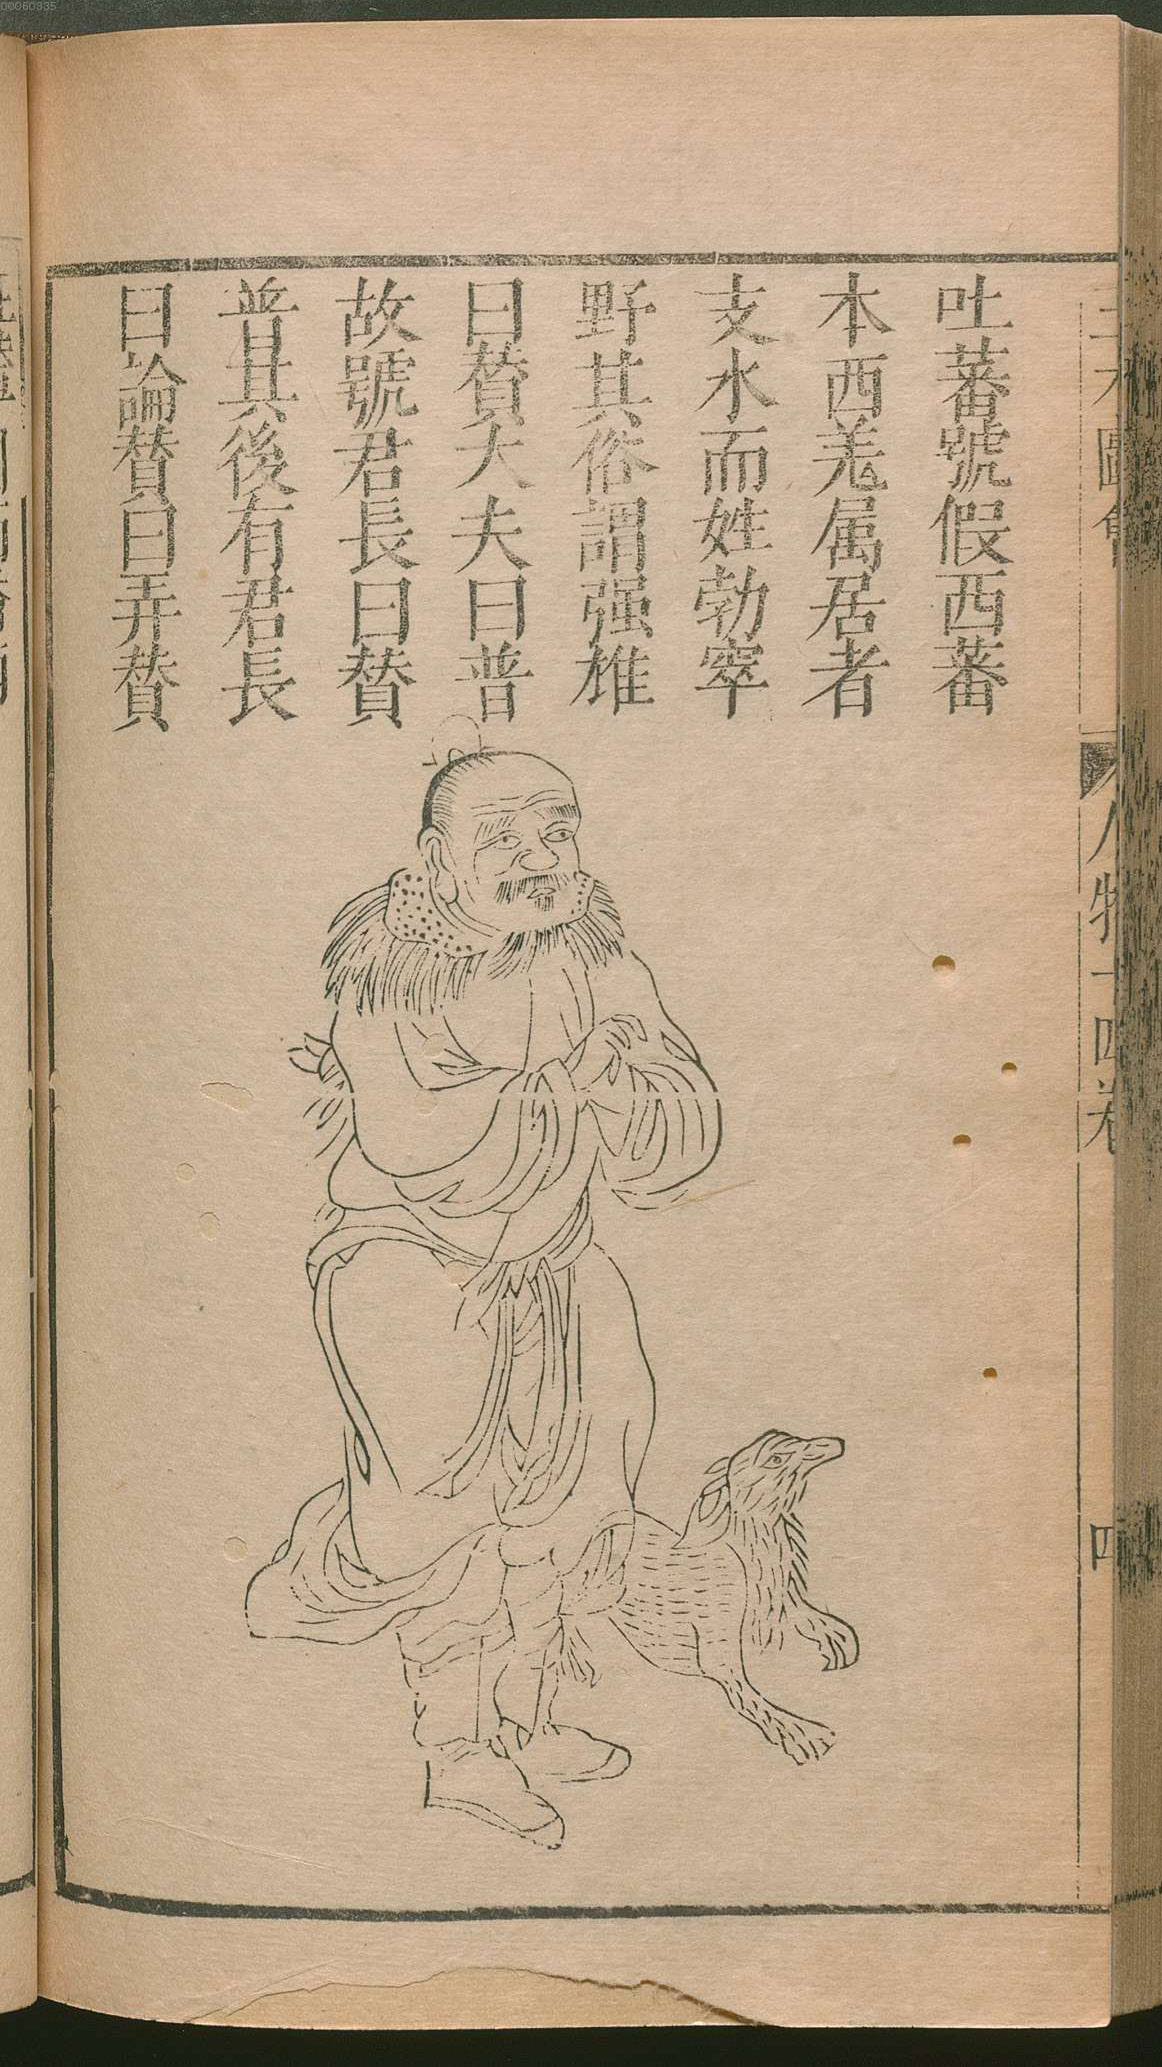 吐蕃號假西蕃
本西羌属居者
支水而姓勃窣
野其俗謂强雄
曰賛大夫曰普
故號君長曰賛
普其後有君長
曰論賛曰弄賛
人物十四卷
四
00060335